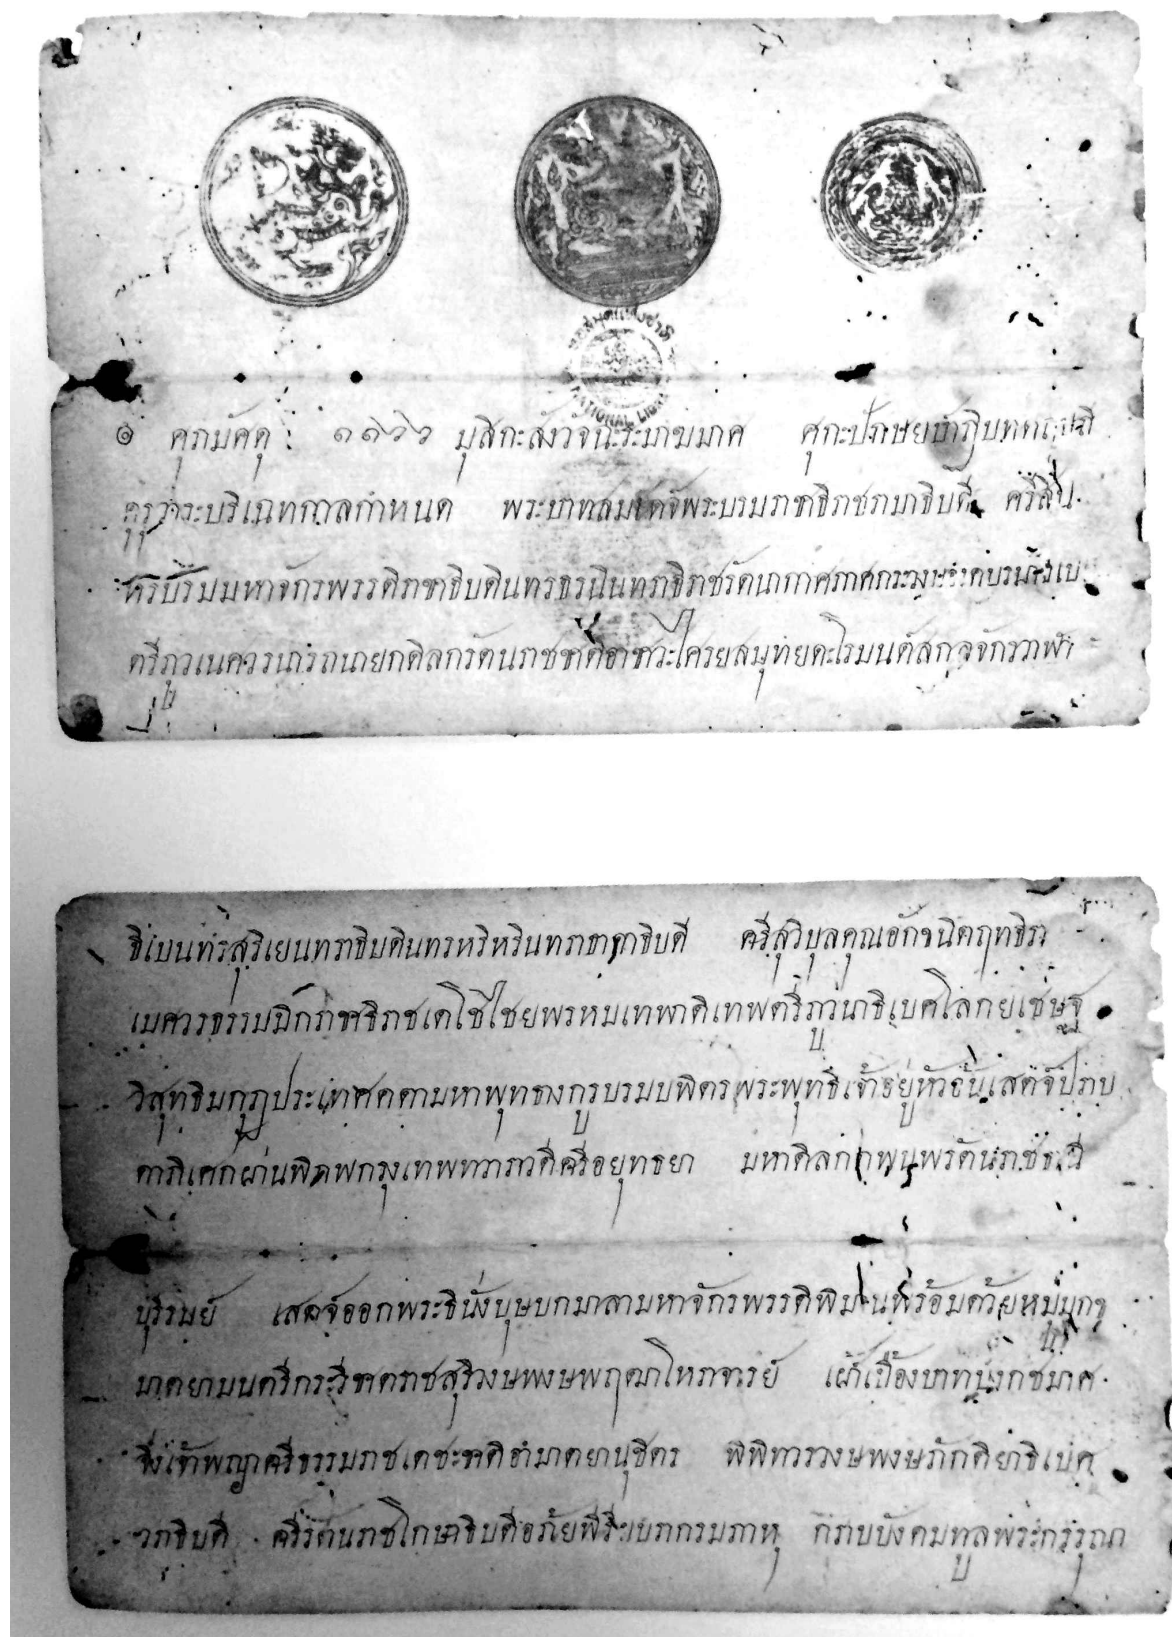 หอสมุดแห่งชาติ
NATIONAL LIBRARY
๏ ศุภมัศดุ ๑๑๖๖ มุสิกะสังวัจฉะระมาฆมาศ ศุกะปักษย
คุรุวาระบริเฉทกาลกำหนด พระบาทสมเดจ์พระบรมราชาธิราชรามาธิบดี ศรีสิน
ทรบรมมหาจักรพรรดิราชาธิบดินทรธรนินทราธิราชรัตนากาศภาศกระวงษ
ตรีภูวเนศวรนารถนายกดิลกรัตนราชชาติอาชาวะไศรยสมุทยดะโรมนต์สกลจักรวาฬา
ธิเบนทรสุริเยนทราธิบดินทรหริหรินทราธาดาธิบดี ศรีสุวิบุลคุณอักขนิตฤทธิรา
เมศวรธรรมมิกราชาธิราชเดโชไชยพรหมเทพาดิเทพตรีภูวนาธิเบศโลกยเชษฐ
วิสุทธิมกุฎประเทศคตามหาพุทธางกูรบรมบพิตรพระพุทธิเจ้าอยู่หัวอันเสดจ์ปราบ
ดาภิเศกผ่านพิภพกรุงเทพทวาราวดีศรีอยุทธยา มหาดิลกภพนพรัตนราชธานี
บุริรมย์ เสดจ์ออกพระธินั่งบุษบกมาลามหาจักรพรรดิพิมานพร้อมด้วยหมู่มุกข
มาตยามนตรีกระวีชาติราชสุริวงษพงษพฤฒาโหราจารย์ เฝ้าเบื้องบาทบงกชมาศ
จึ่งเจ้าพญาศรีธรรมราชเดชะชาติอำมาตยานุชิตร พิพิทวรวงษพงษภักดิยาธิเบศ
วราธิบดี ศรีรัตนราชโกษาธิบดีอภัยพิรียบรากรมภาหุ กราบบังคมทูลพระกรรุณา